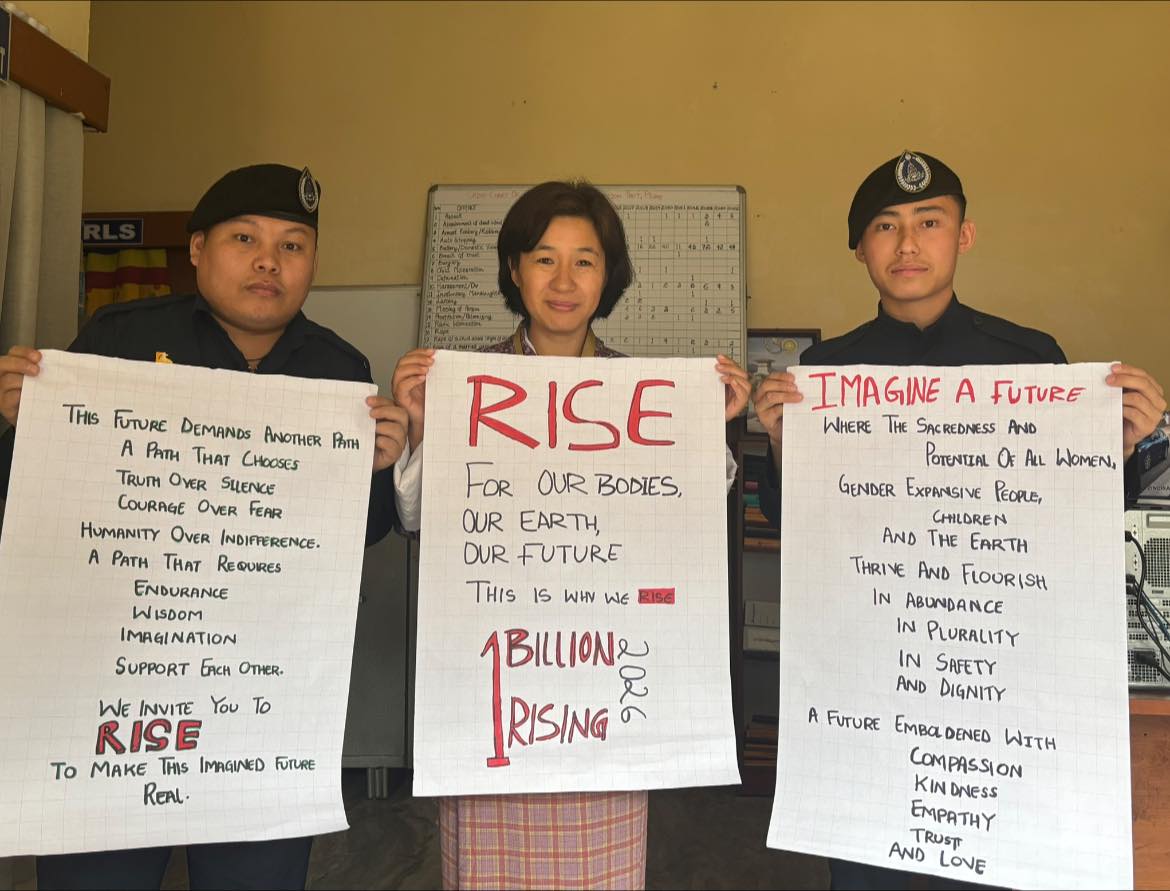 RLS
THIS FUTURE DEMANDS ANOTHER PATH
A PATH THAT CHOOSES
TRUTH OVER SILENCE
COURAGE OVER FEAR
HUMANITY OVER INDIFFERENCE.
A PATH THAT REQUIRES
ENDURANCE
WISDOM
IMAGINATION
SUPPORT EACH OTHER.
WE INVITE YOU TO
RISE
TO MAKE THIS IMAGINED FUTURE
REAL.
RISE
FOR OUR BODIES,
OUR EARTH,
OUR FUTURE
THIS IS WHY WE RISE
1 BILLION
RISING
2026
IMAGINE A FUTURE
WHERE THE SACREDNESS AND
POTENTIAL OF ALL WOMEN,
GENDER EXPANSIVE PEOPLE,
CHILDREN
AND THE EARTH
THRIVE AND FLOURISH
IN ABUNDANCE
IN PLURALITY
IN SAFETY
AND DIGNITY
A FUTURE EMBOLDENED WITH
COMPASSION
KINDNESS
EMPATHY
TRUST
AND LOVE